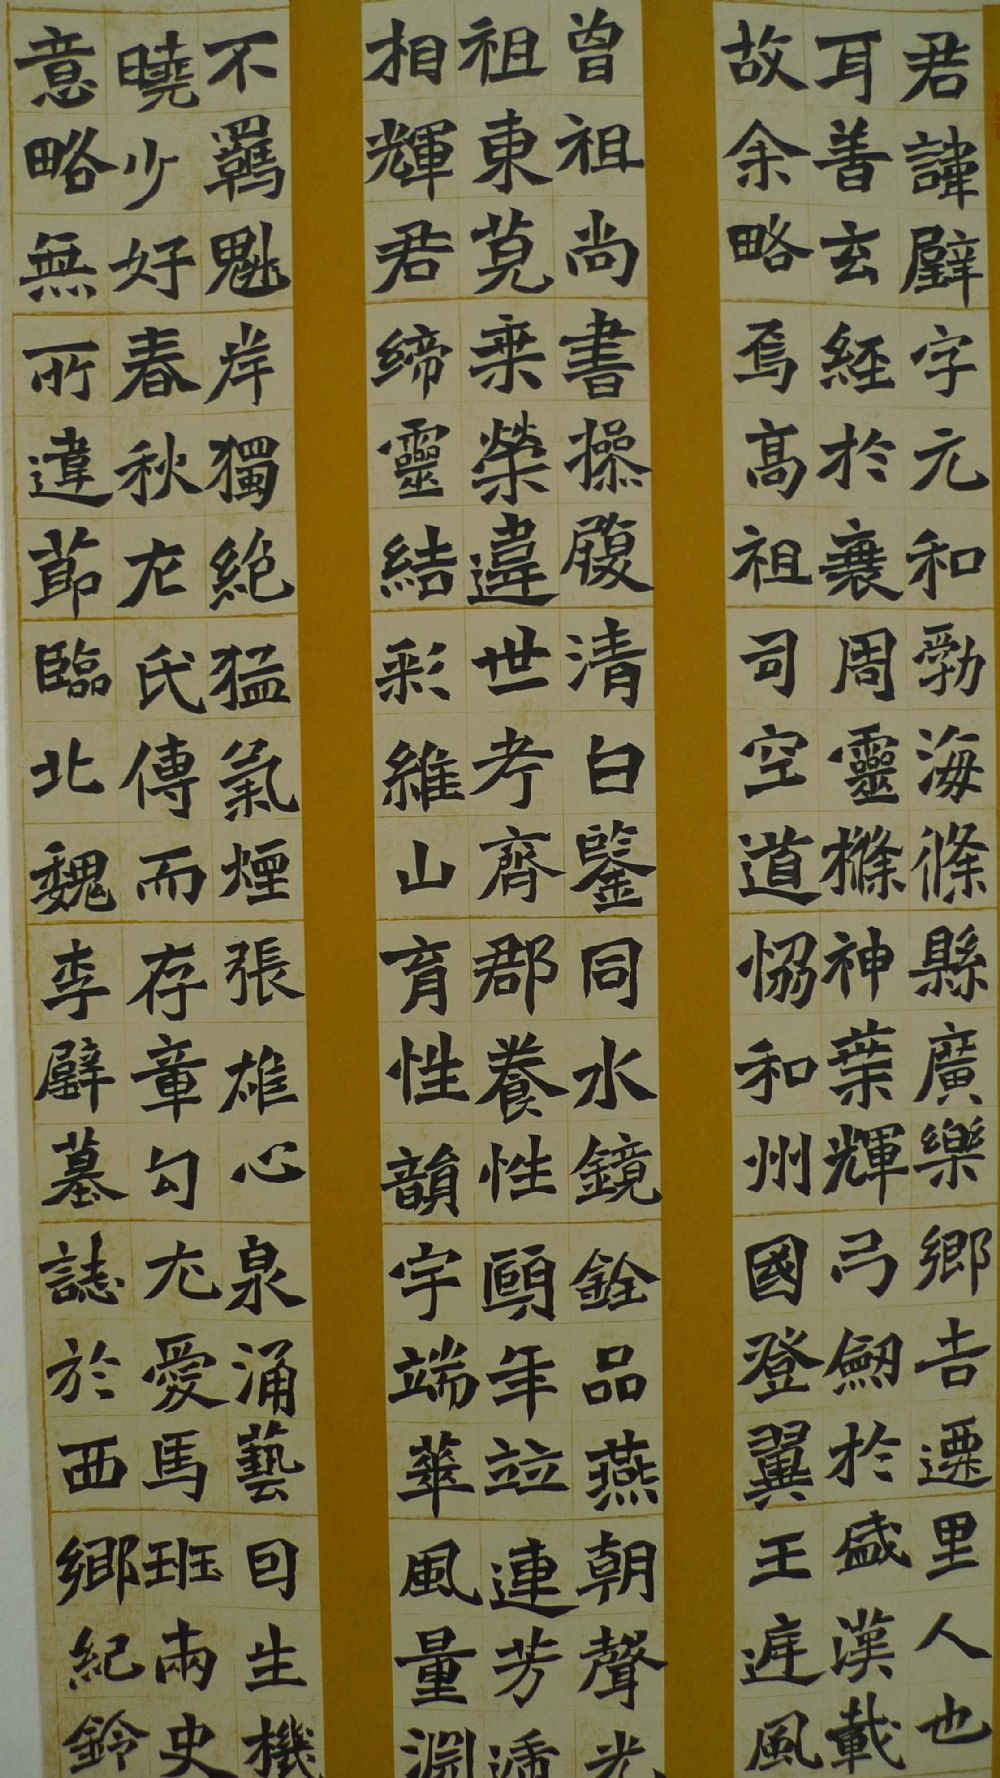 君諱璧字元和勃海條縣廣樂鄉吉遷里人也
耳善玄經於衰周靈櫾神葉輝弓劒於盛漢載
故余略焉高祖司空道恊和州國登翼王庭風
曾祖尚書操履清白鑒同水鏡銓品燕朝聲光
祖東莞乗榮違世考齊郡養性頤年竝連芳遞
相輝君締靈結彩維山育性韻宇端華風量淵
不羈魁岸獨絶猛氣煙張雄心泉涌藝囙生機
曉少好春秋左氏傳而存章勾尤愛馬班兩史
意略無所違節臨北魏李璧墓誌於西鄉紀鈴